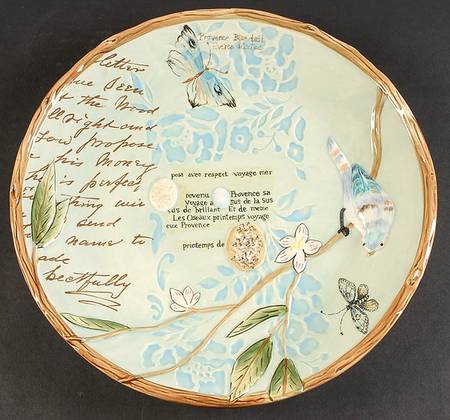 Provence Bluetail
letter
Been
t the Mood
ll right and
propose
his Money
is perfect
thing wie
send
name to
ade
pectfully
post avec respect voyage mer
revenu Provence sa
Voyage a us de la sus
sus de brillant Et de meme
Les Oiseaux printemps voyage
eux Provence
printemps de